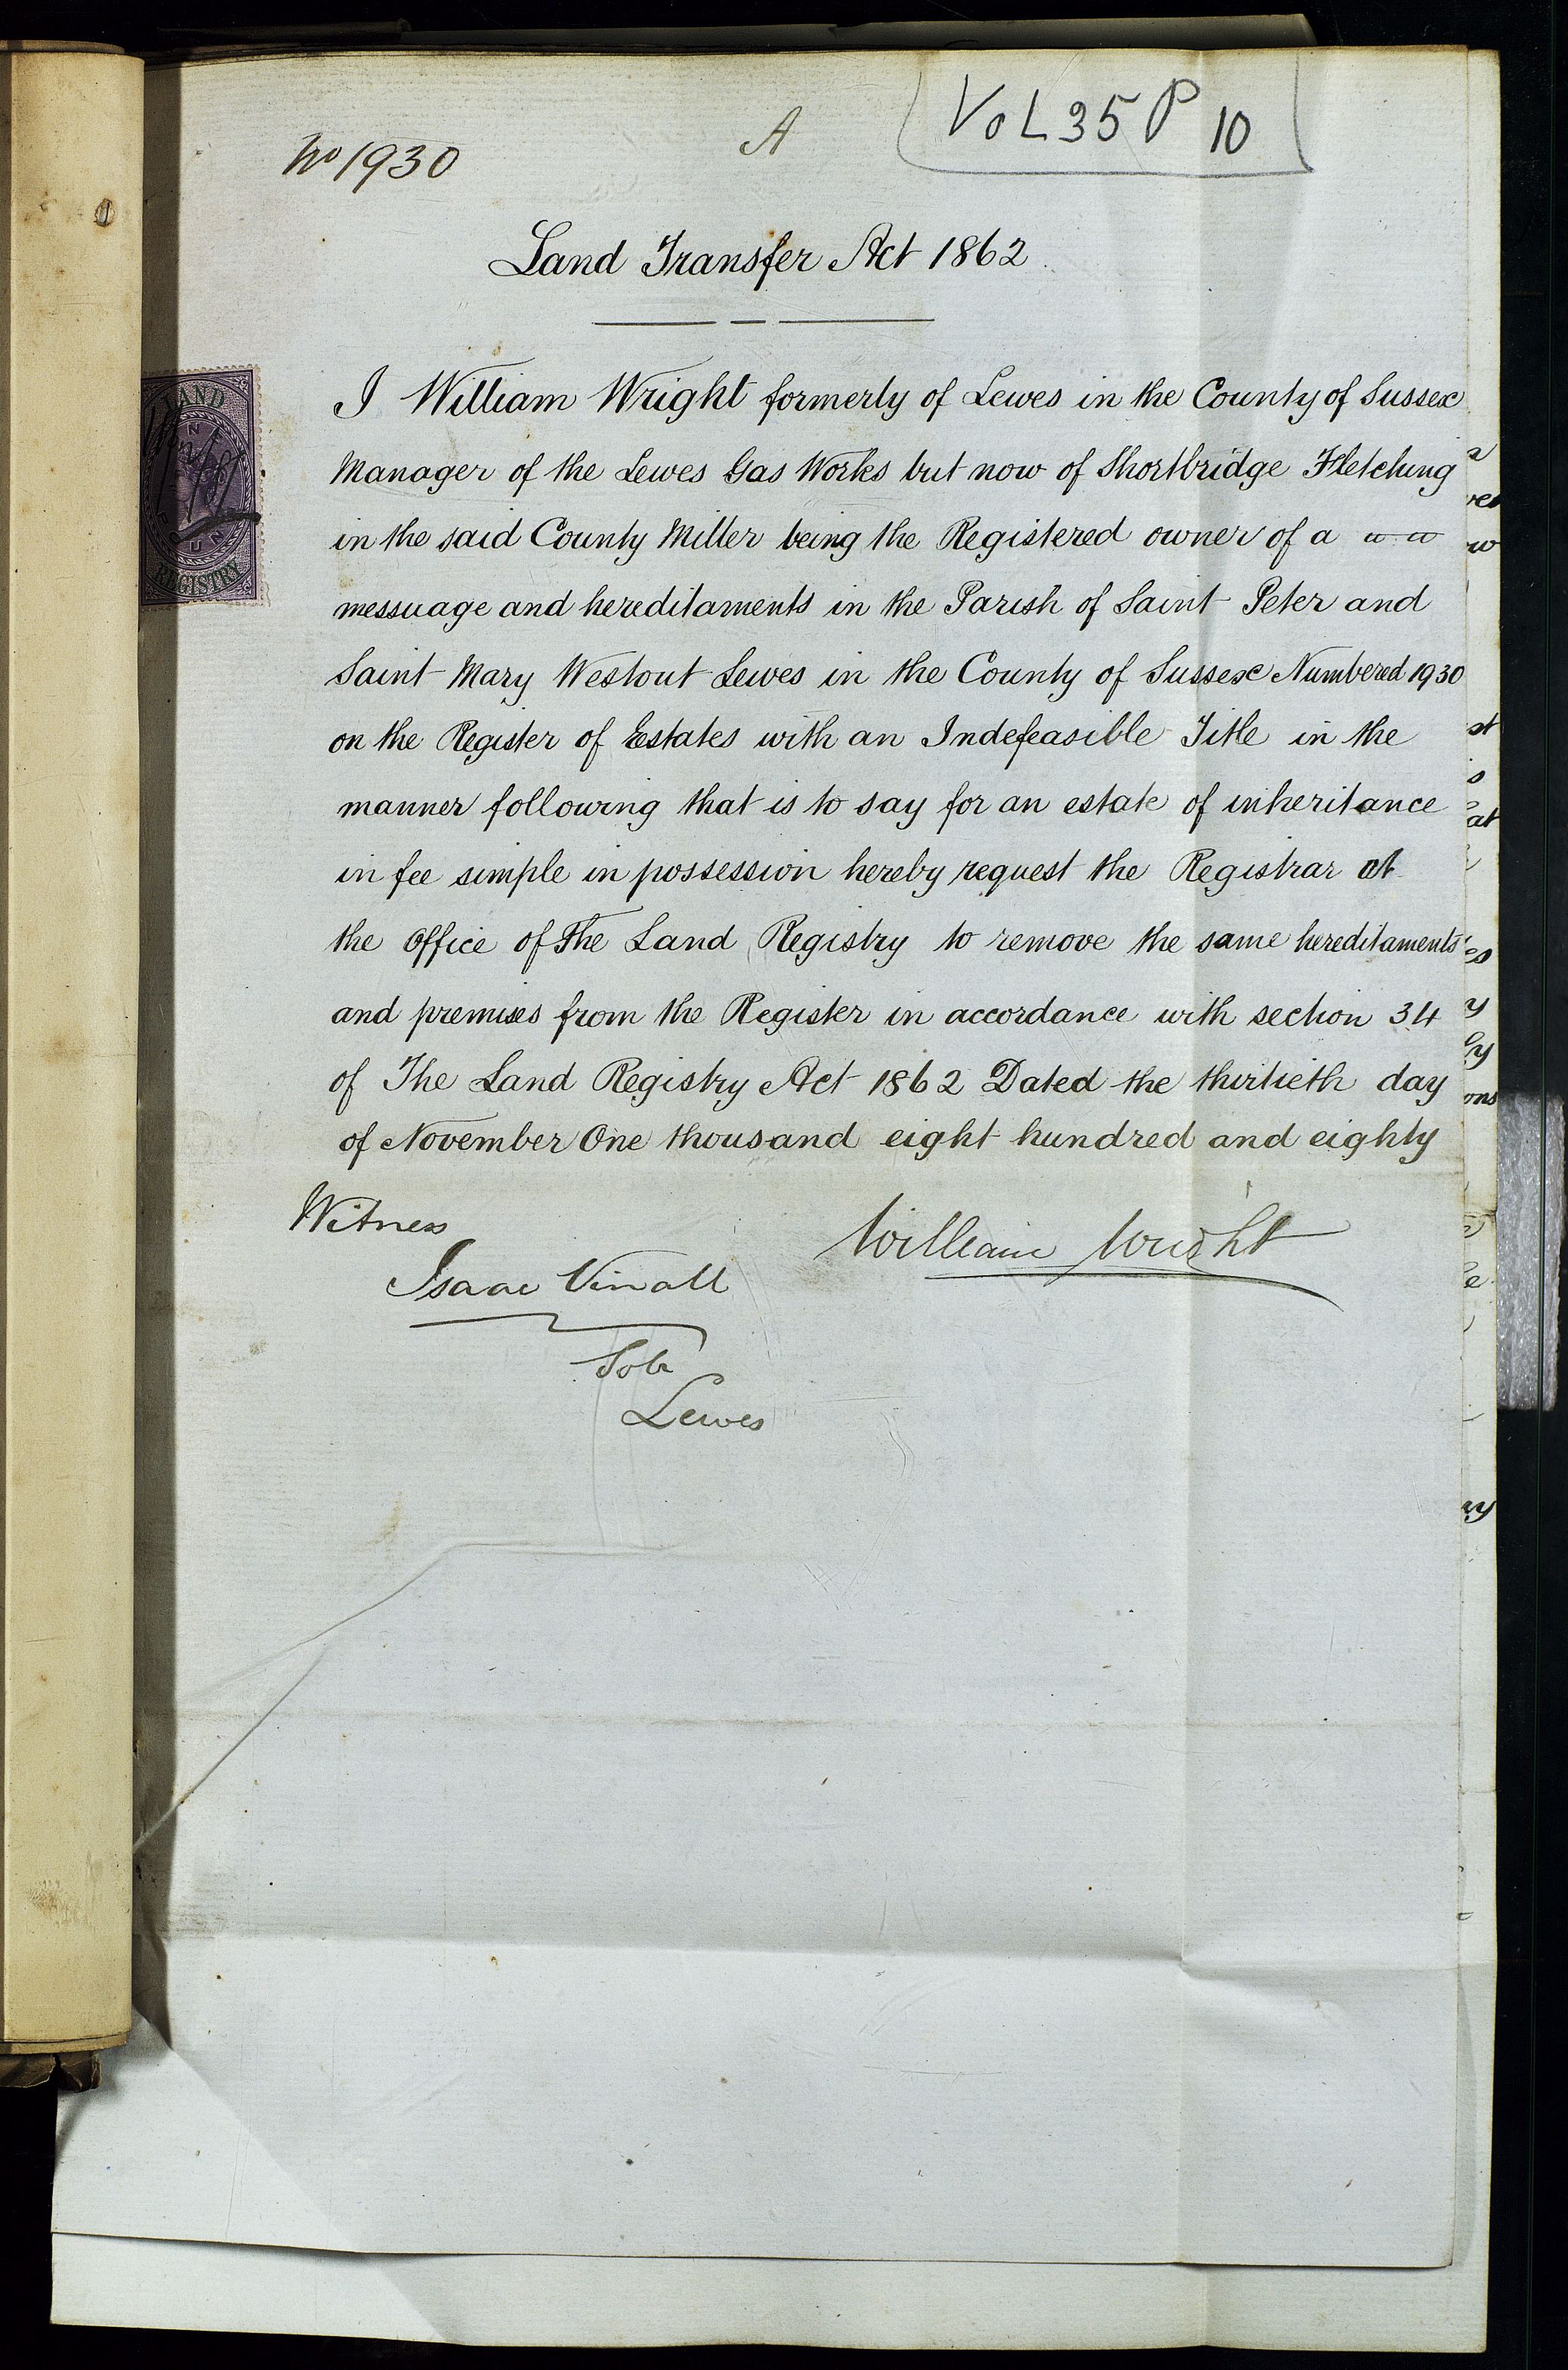 No 1930
A
VOL 35 P 10
Land Transfer Act 1862
LAND
REGISTRY
I William Wright formerly of Lewes in the County of Sussex
Manager of the Lewes Gas Works but now of Shortbridge Fletching
in the said County Miller being the Registered owner of a
messuage and hereditaments in the Parish of Saint Peter and
Saint Mary Westout Lewes in the County of Sussex Numbered 1930
on the Register of Estates with an Indefeasible Title in the
manner following that is to say for an estate of inheritance
in fee simple in possession hereby request the Registrar at
the Office of The Land Registry to remove the same hereditaments
and premises from the Register in accordance with section 34
of The Land Registry Act 1862 Dated the thirtieth day
of November One thousand eight hundred and eighty
Witness
William Wright
Isaac Vinall
Solr
Lewes